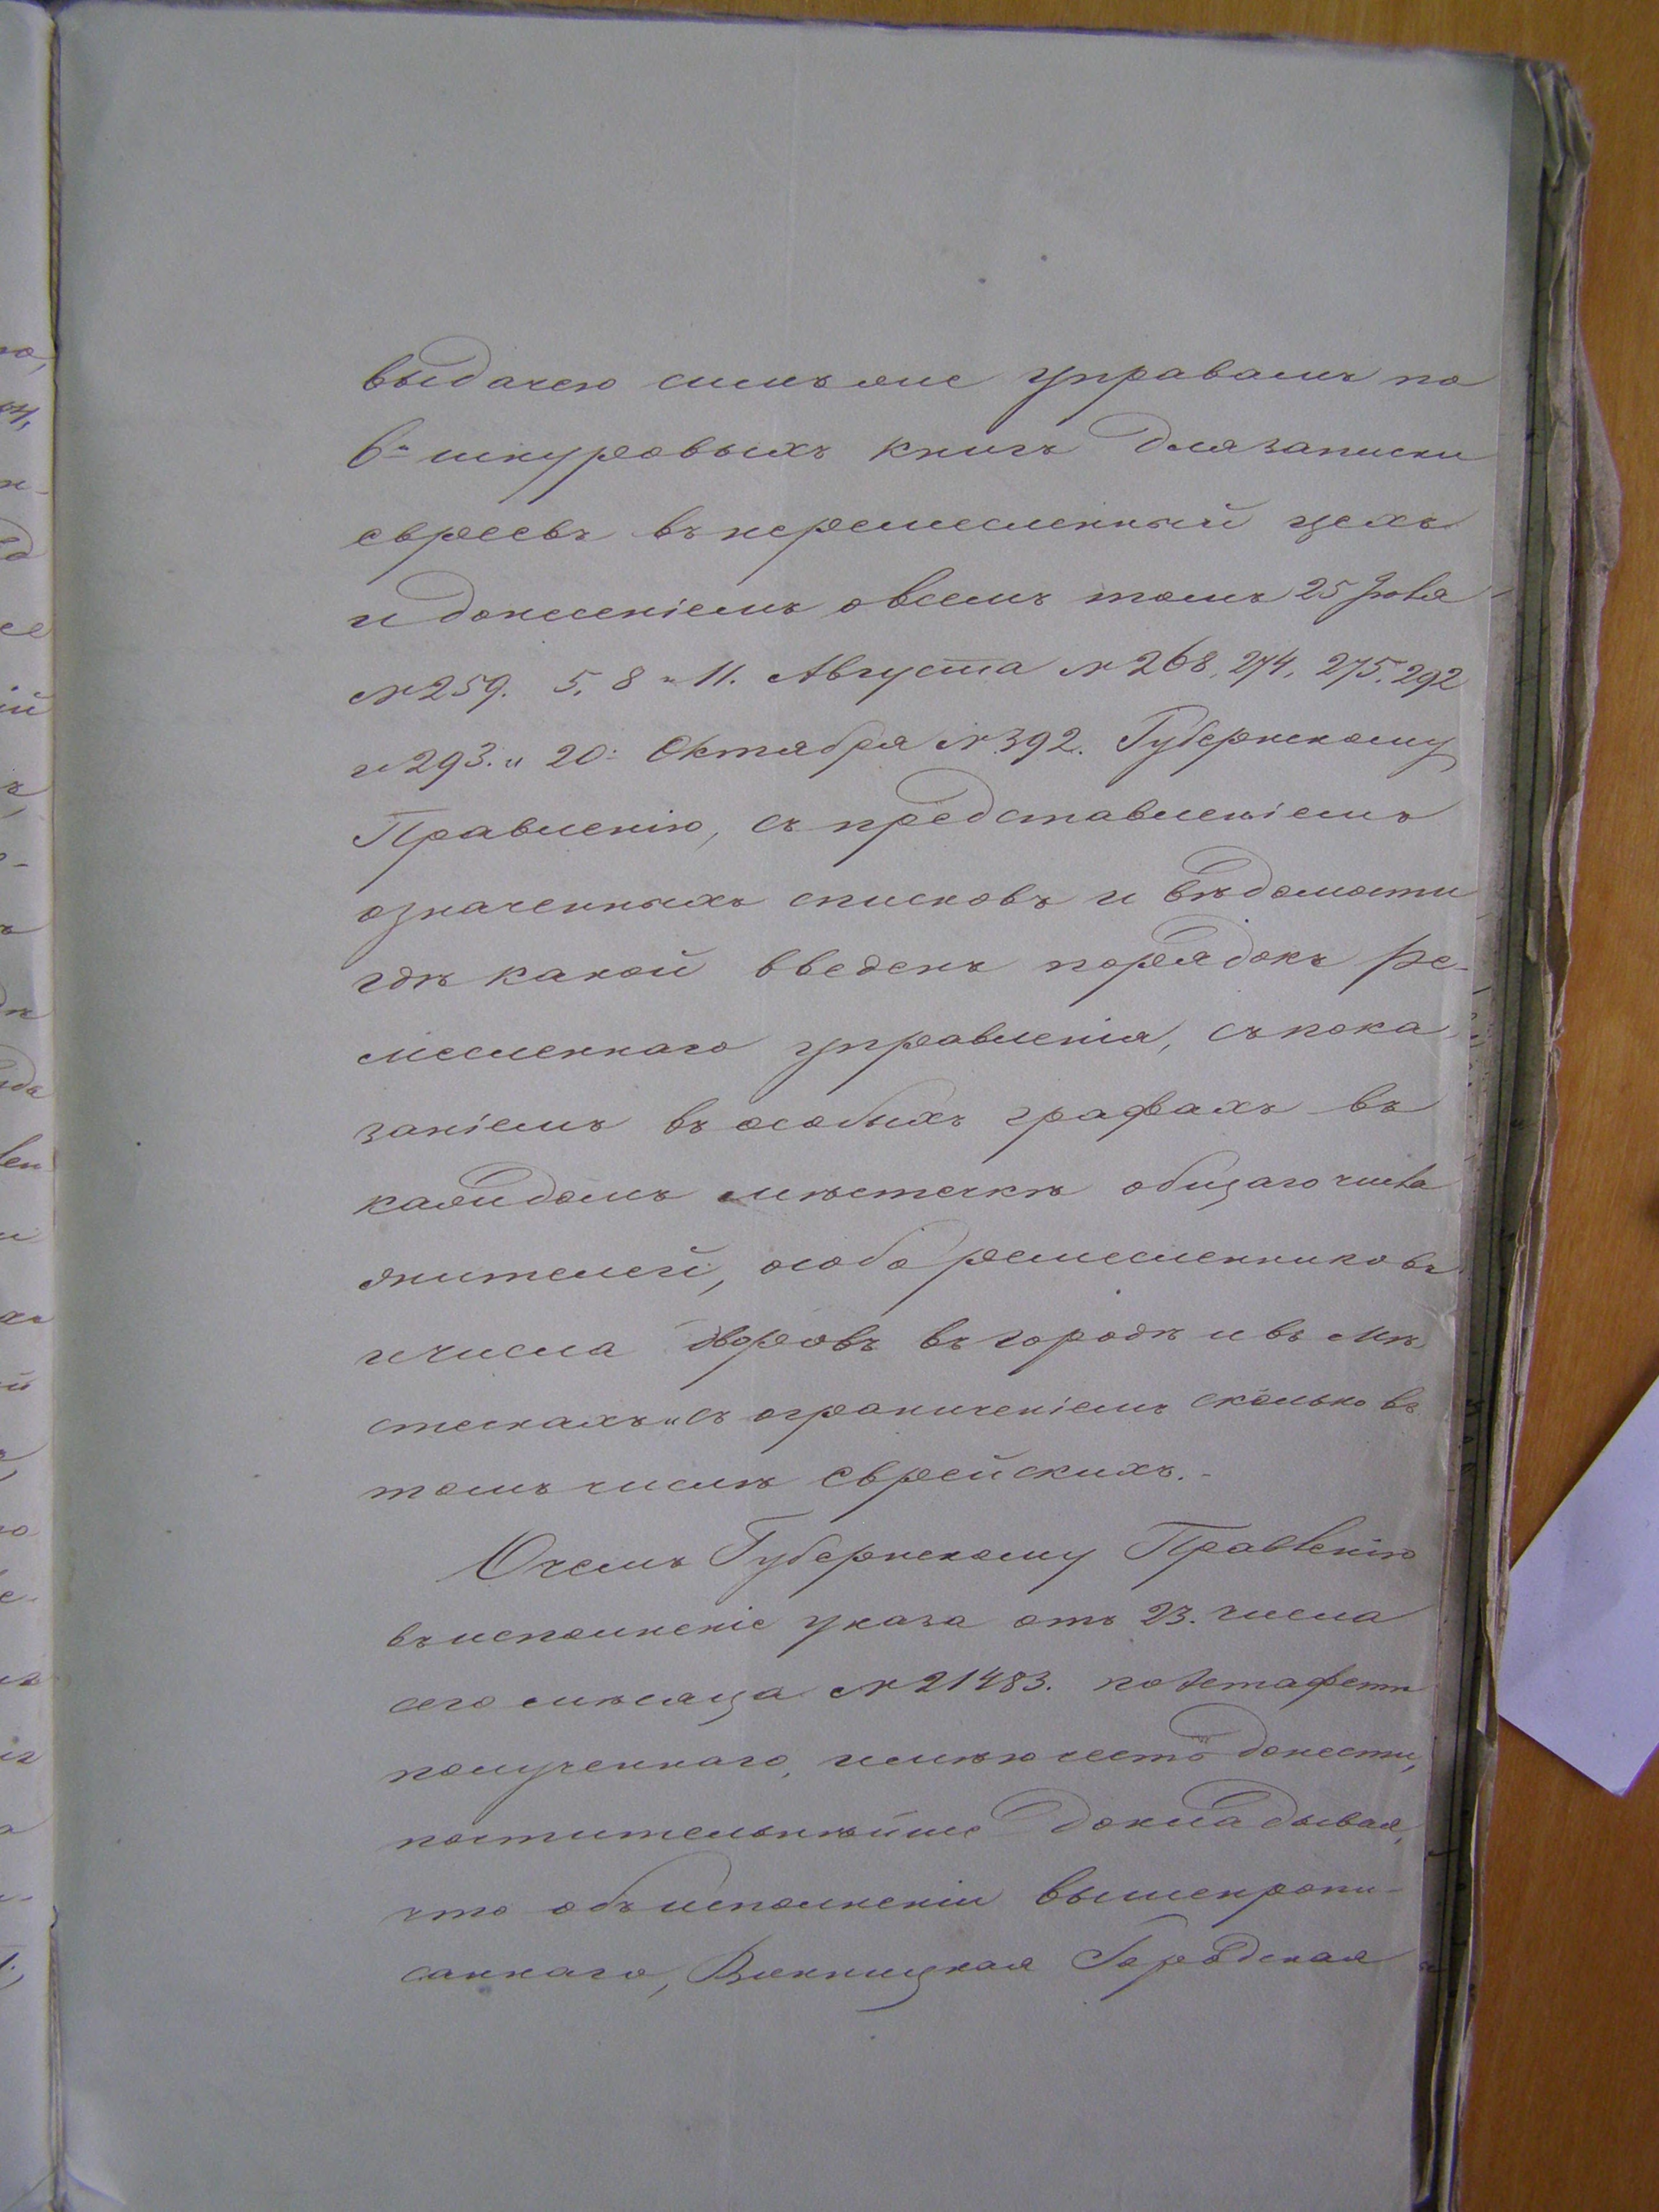 выдачею симъ же управамъ по
6ᵗⁱ шнуровыхъ книгъ для записки
евреевъ въ неремесленный цехъ
и донесеніемъ о всемъ томъ 25 Іюля
№ 259. 5, 8 и 11. Августа № 268, 274, 275, 292
и 293. и 20. Октября № 392. Губернскому
Правленію, съ представленіемъ
означенныхъ списковъ и вѣдомости
гдѣ какой введенъ порядокъ ре-
месленнаго управленія, съ пока
заніемъ въ особыхъ графахъ въ
каждомъ мѣстечкѣ общаго числа
жителей, особо ремесленниковъ
и числа дворовъ въ городѣ и въ мѣ
стечкахъ и съ ограниченіемъ сколько въ
томъ числѣ еврейскихъ.-
О чемъ Губернскому Правленію
въ исполненіе указа отъ 23. числа
сего мѣсяца № 21483. по эстафетѣ
полученнаго, имѣю честь донести,
почтительнѣйше докладывая,
что объ исполненіи вышепропи-
саннаго, Винницкая Городская